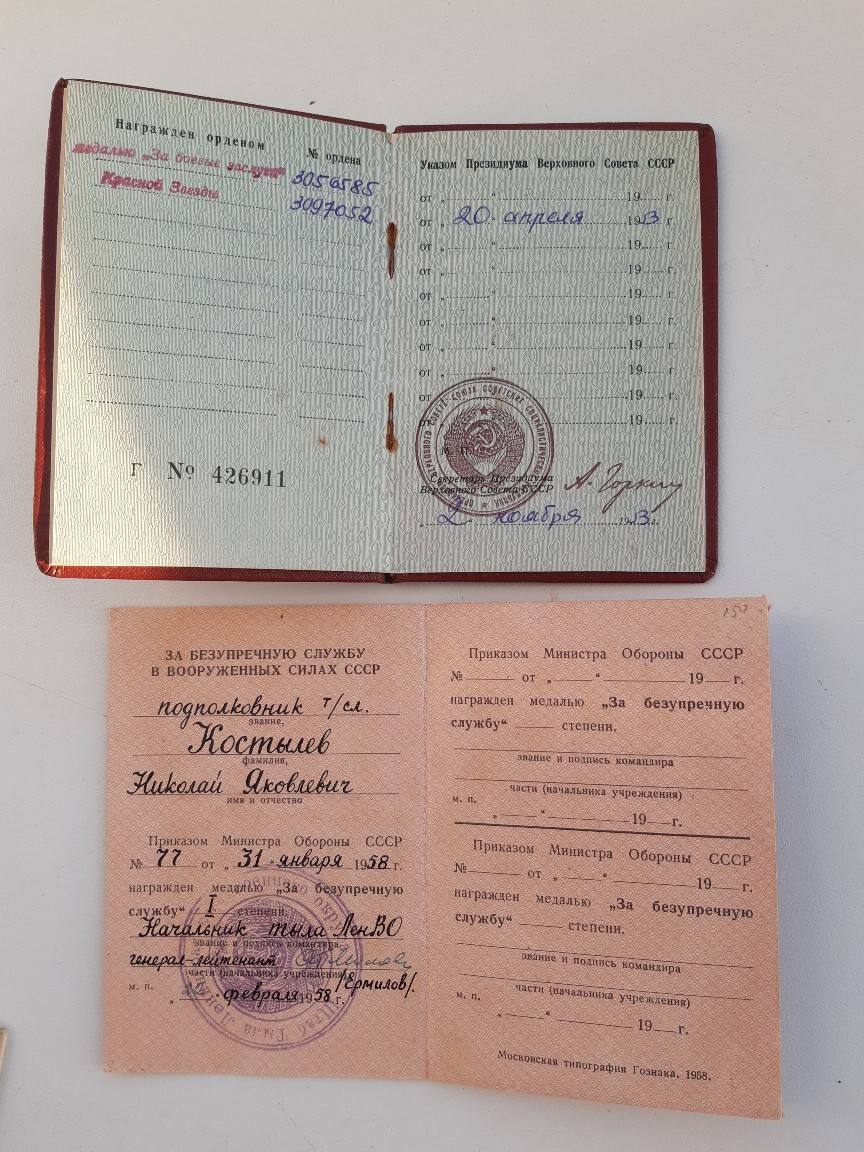 Награжден орденом
№ ордена
медалью „За боевые заслуги“ 3056585
Красной Звезды 3097052
Г № 426911
Указом Президиума Верховного Совета СССР
от „ “ 19 г.
от „ 20 “ апреля 1953 г.
от „ “ 19 г.
от „ “ 19 г.
от „ “ 19 г.
от „ “ 19 г.
от „ “ 19 г.
от „ “ 19 г.
от „ “ 19 г.
от „ “ 19 г.
М. П.
Секретарь Президиума
Верховного Совета СССР А. Горкин
„ 2 “ ноября 1953 г.
ЗА БЕЗУПРЕЧНУЮ СЛУЖБУ
В ВООРУЖЕННЫХ СИЛАХ СССР
подполковник т/сл.
звание,
Костылев
фамилия,
Николай Яковлевич
имя и отчество
Приказом Министра Обороны СССР
№ 77 от „ 31 “ января 1958 г.
награжден медалью „За безупречную
службу“ I степени.
Начальник тыла ЛенВО
звание и подпись командира
генерал-лейтенант
части (начальника учреждения)
/Ермилов/.
м. п.
„ “ февраля 1958 г.
150
Приказом Министра Обороны СССР
№ от „ “ 19 г.
награжден медалью „За безупречную
службу“ степени.
звание и подпись командира
части (начальника учреждения)
м. п.
„ “ 19 г.
Приказом Министра Обороны СССР
№ от „ “ 19 г.
награжден медалью „За безупречную
службу“ степени.
звание и подпись командира
части (начальника учреждения)
м. п.
„ “ 19 г.
Московская типография Гознака. 1958.